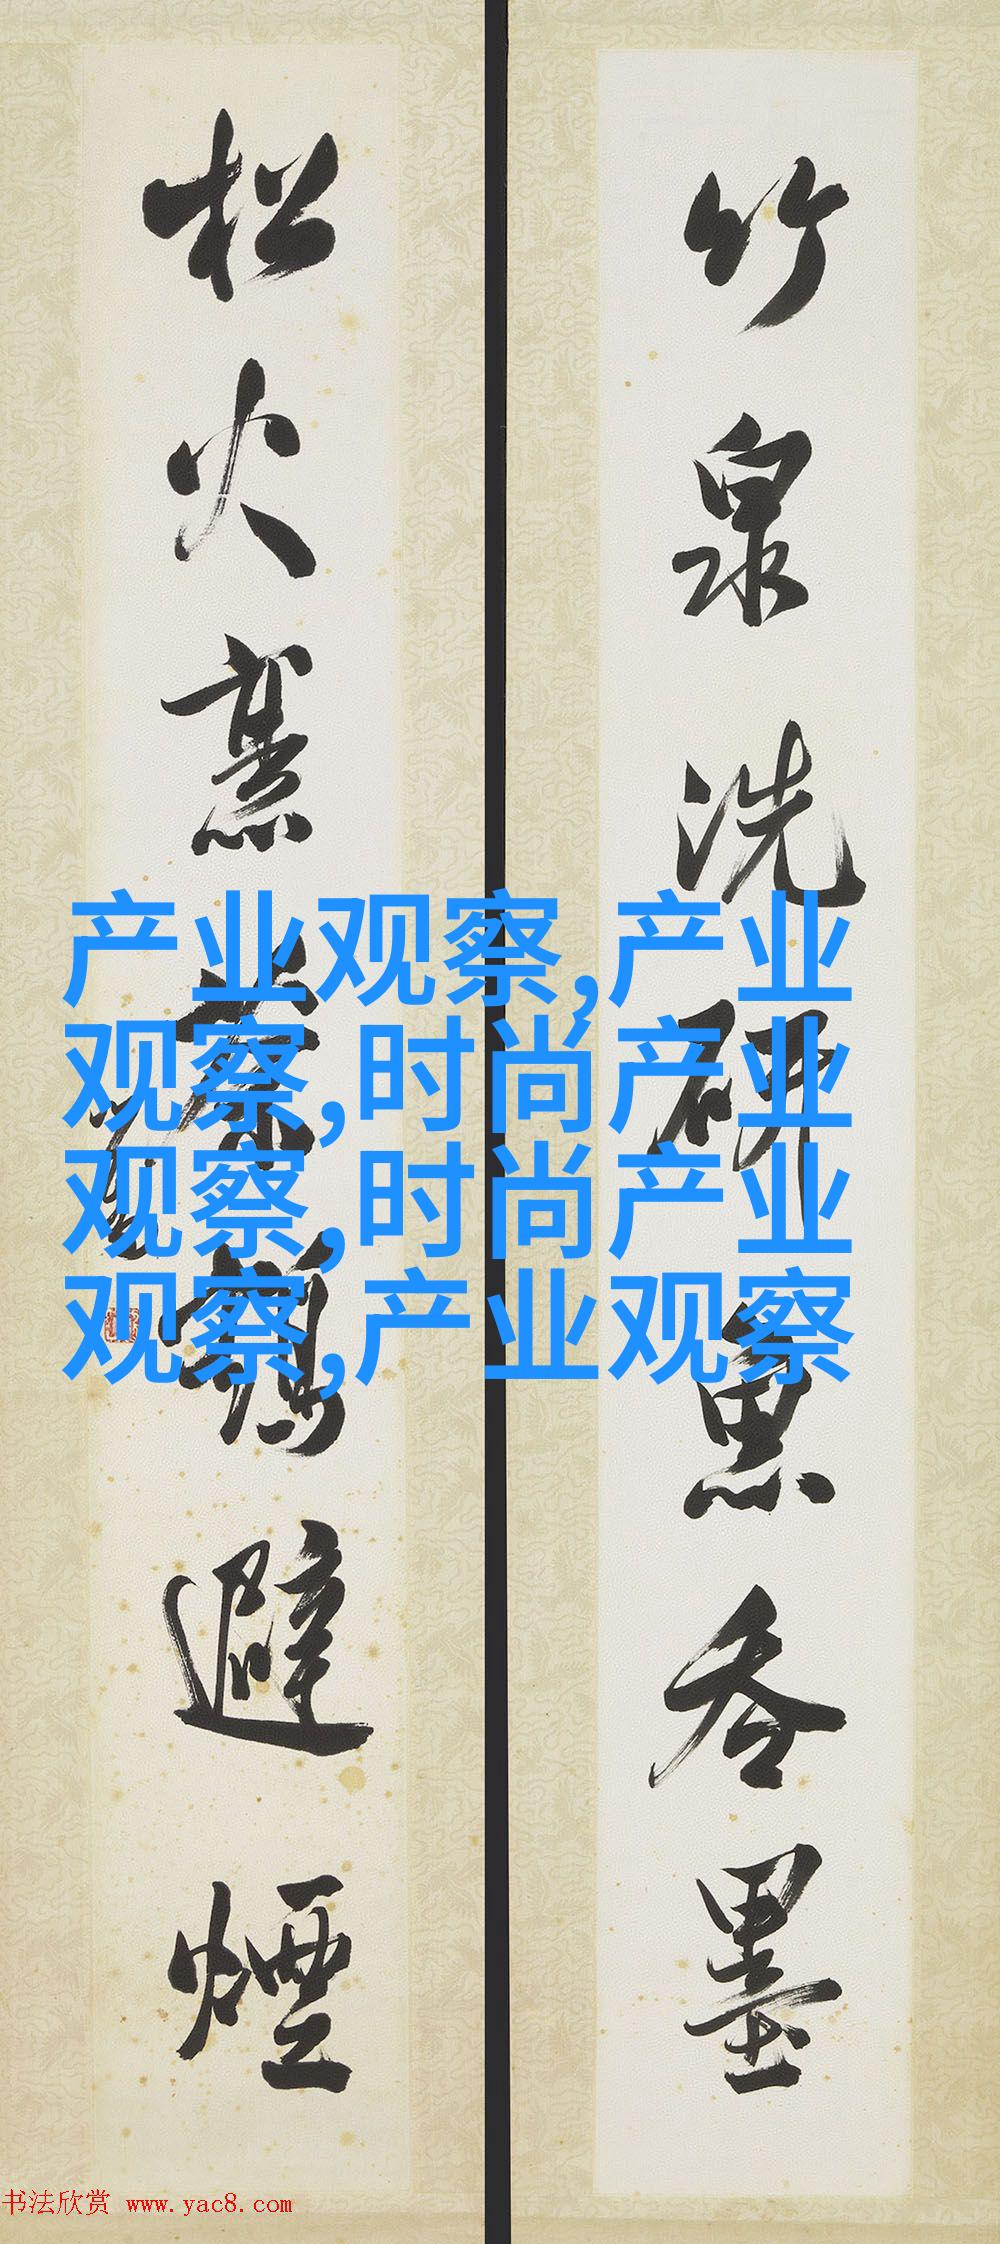 竹泉洗研魚吞墨
松火烹茶鶴避煙
产业观察,产业
观察,时尚产业
观察,时尚产业
观察,产业观察
书法欣赏 www.yac8.com